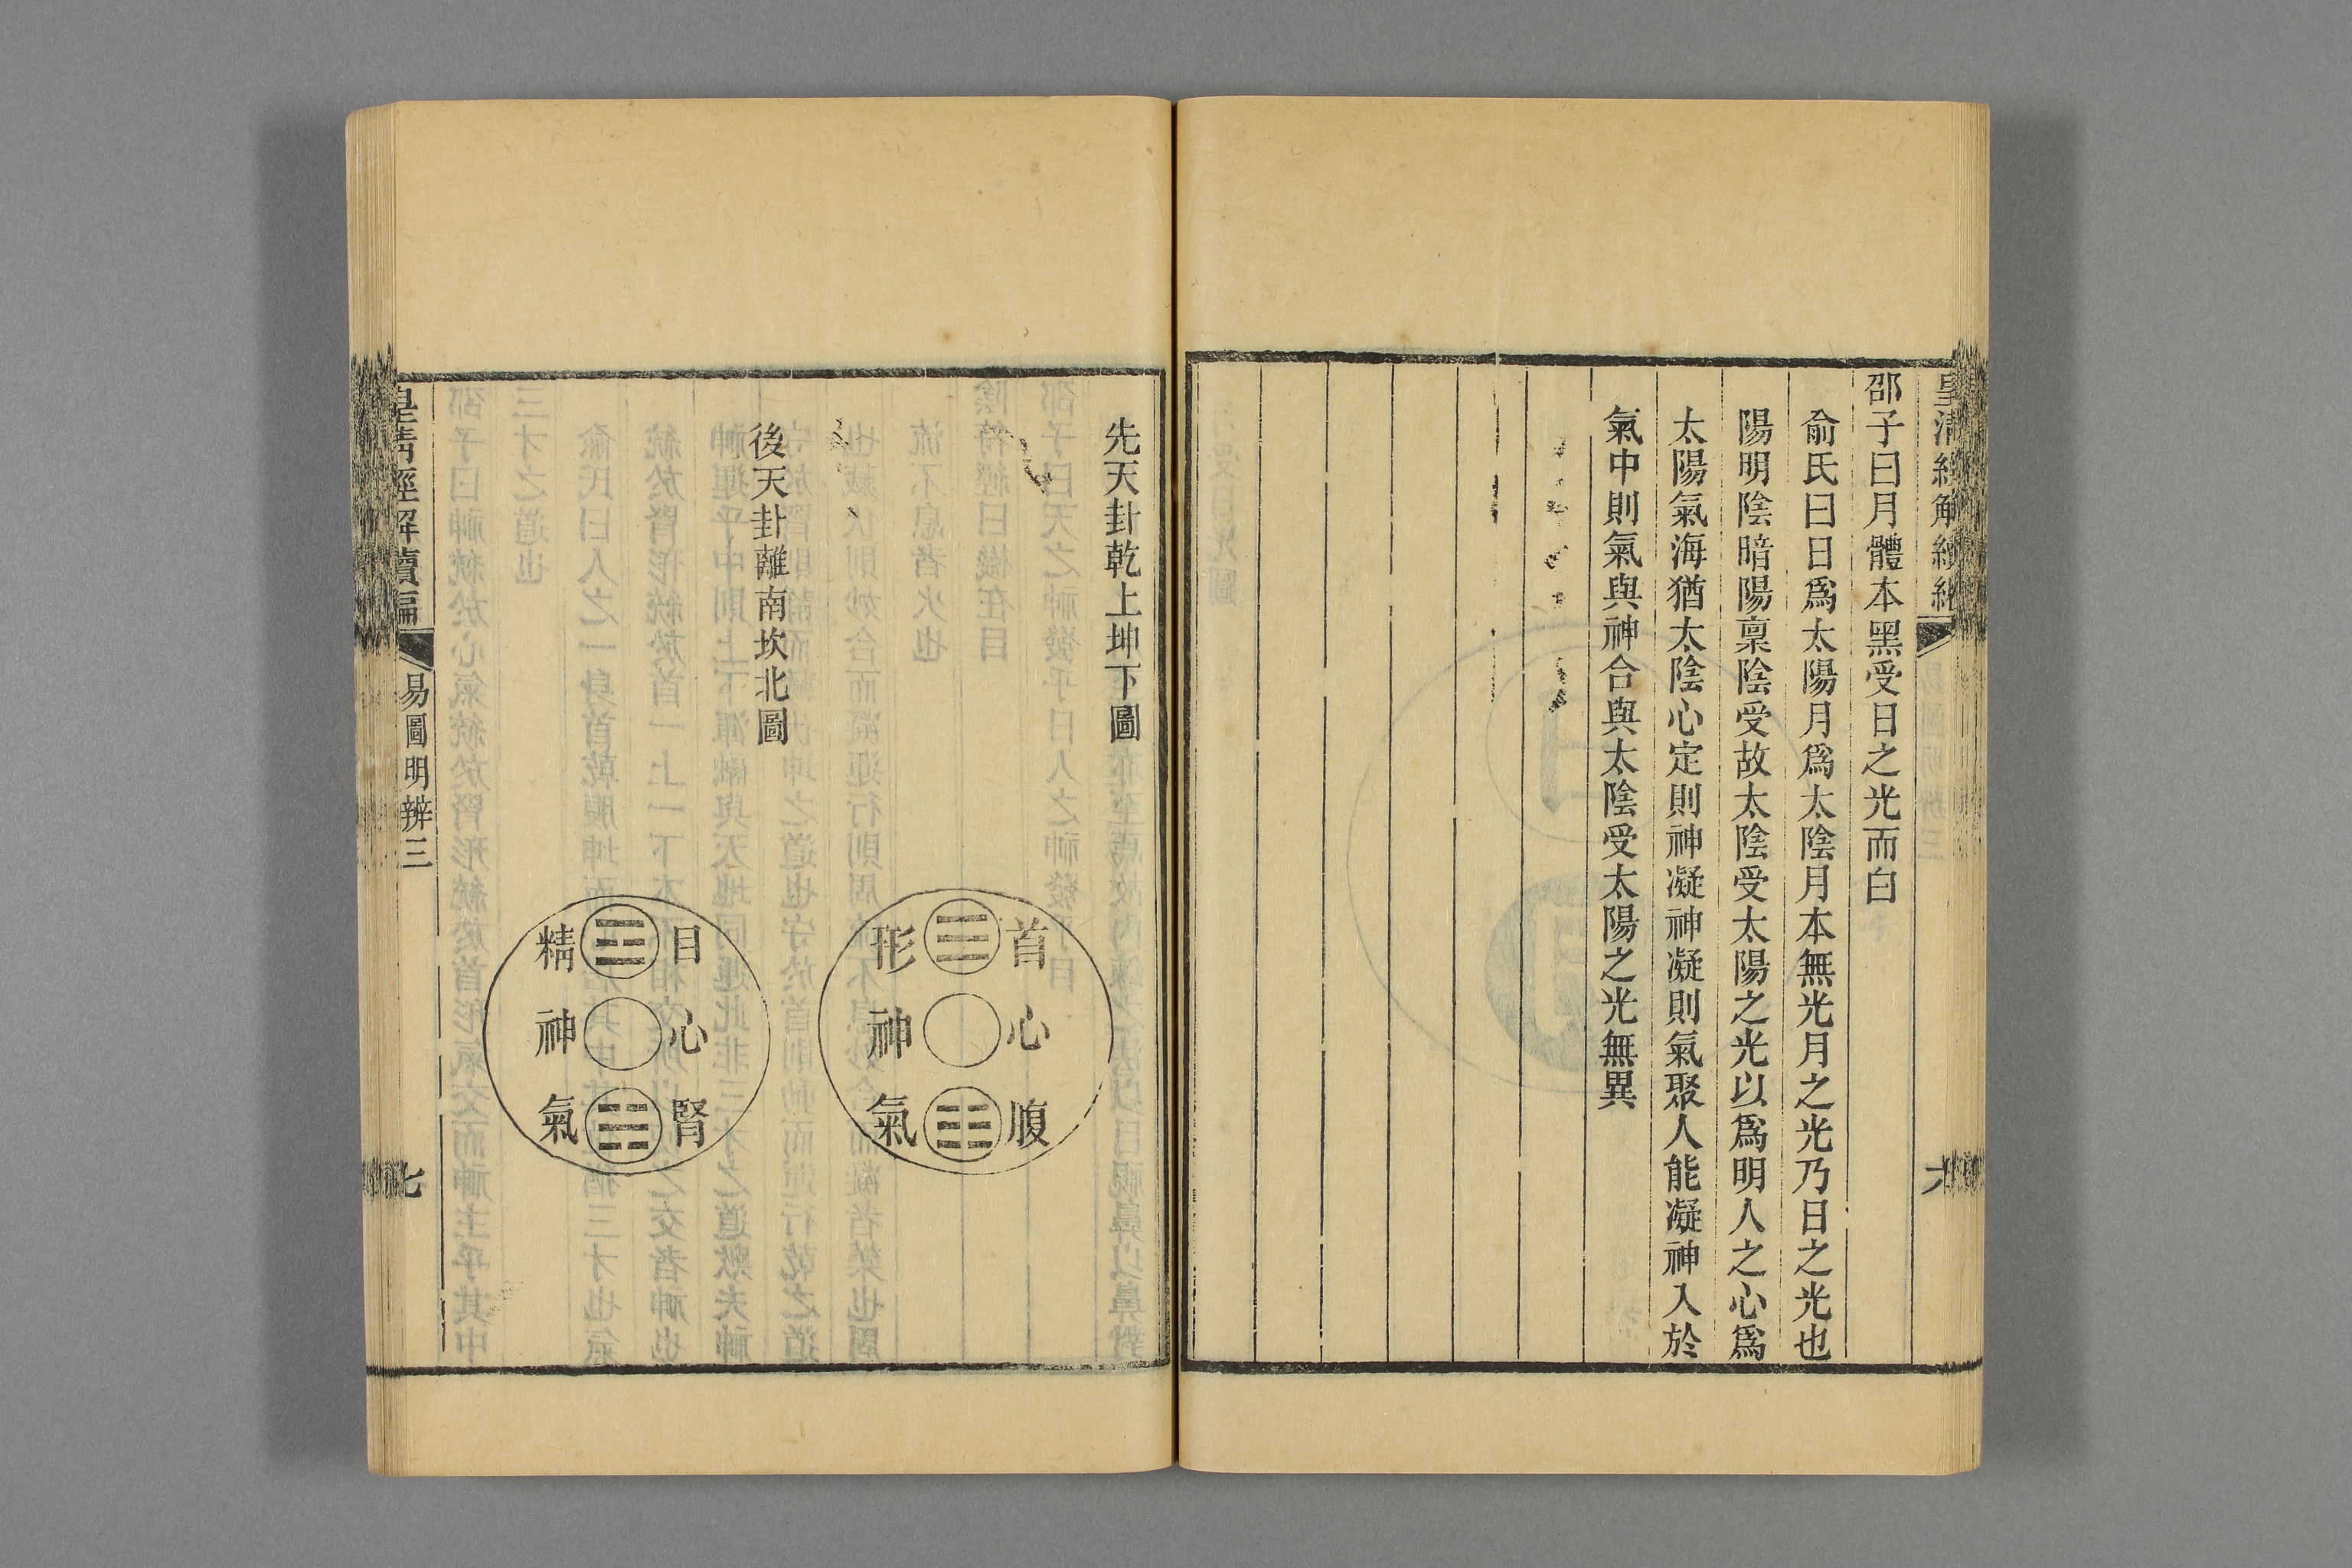 皇清經解續編
邵子曰月體本黑受日之光而白
俞氏曰日爲太陽月爲太陰月本無光月之光乃日之光也
陽明陰暗陽稟陰受故太陰受太陽之光以爲明人之心爲
太陽氣海猶太陰心定則神凝神凝則氣聚人能凝神入於
氣中則氣與神合與太陰受太陽之光無異
六
先天卦乾上坤下圖
首 心 腹
形 神 氣
後天卦離南坎北圖
目 心 腎
精 神 氣
皇清經解續編
易圖明辨三
七